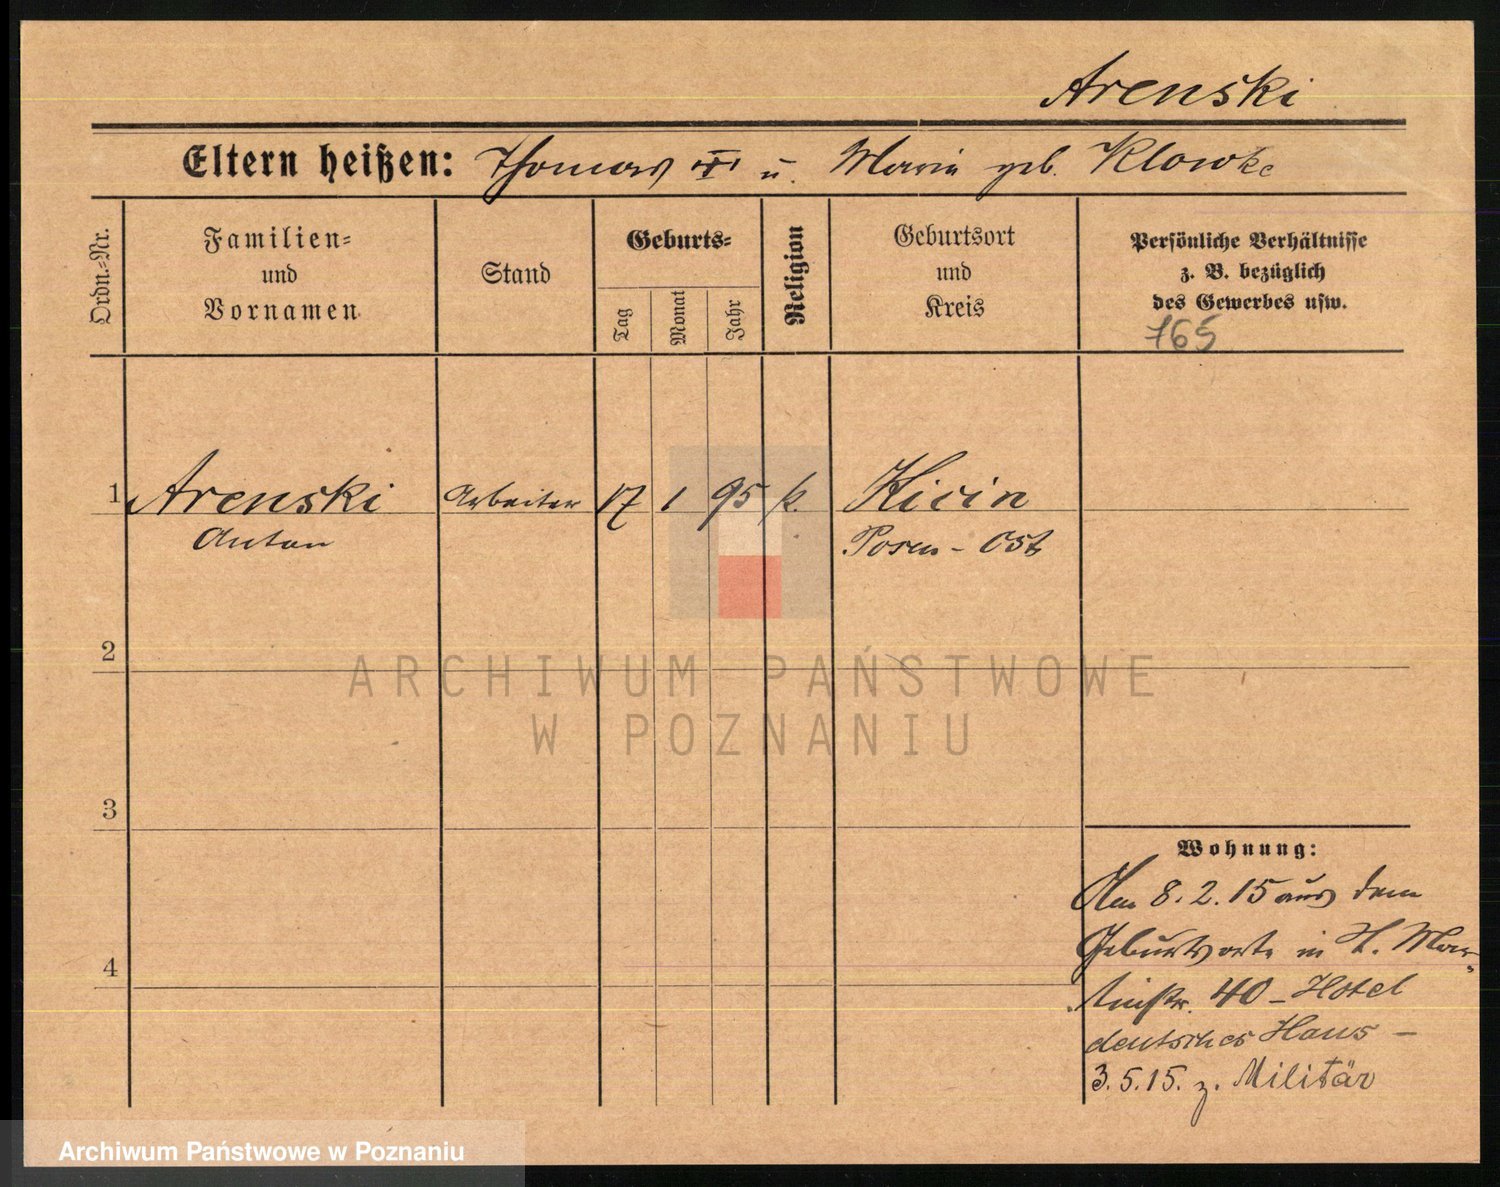 Arenski
Eltern heißen: Thomas u. Maria geb. Klowke
Ordn.-Nr.
Familien-
und
Vornamen
Stand
Geburts-
Tag
Monat
Jahr
Religion
Geburtsort
und
Kreis
Persönliche Verhältnisse
z. B. bezüglich
des Gewerbes usw.
765
1 Arenski Arbeiter 17 1 95 k. Kicin
Anton Posen-Ost
2
ARCHIWUM PAŃSTWOWE
W POZNANIU
3
Wohnung:
Am 8.2.15 aus dem
Geburtsorte in St. Mar-
tinstr. 40 - Hotel
4
deutsches Haus -
3.5.15. z. Militär
Archiwum Państwowe w Poznaniu